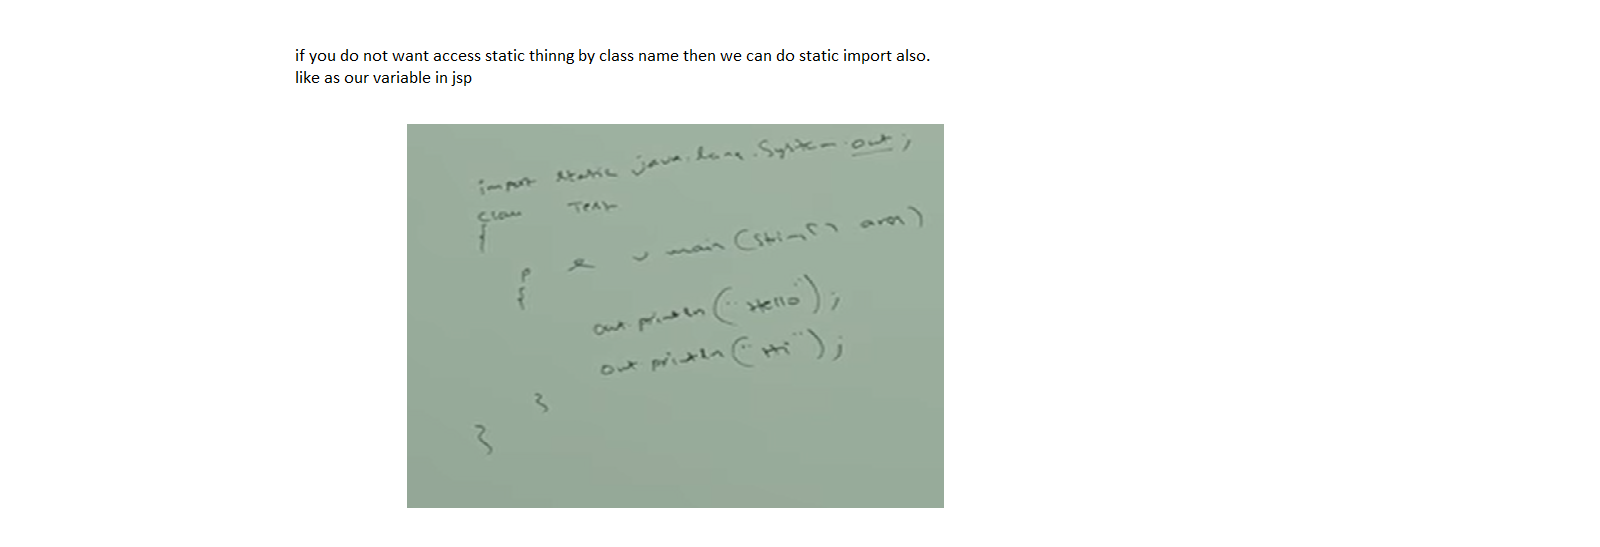 if you do not want access static thinng by class name then we can do static import also.
like as our variable in jsp
import static java.lang.System.out;
class Test
{
p s v main (String[] args)
{
out.println("Hello");
out.println("Hi");
}
}